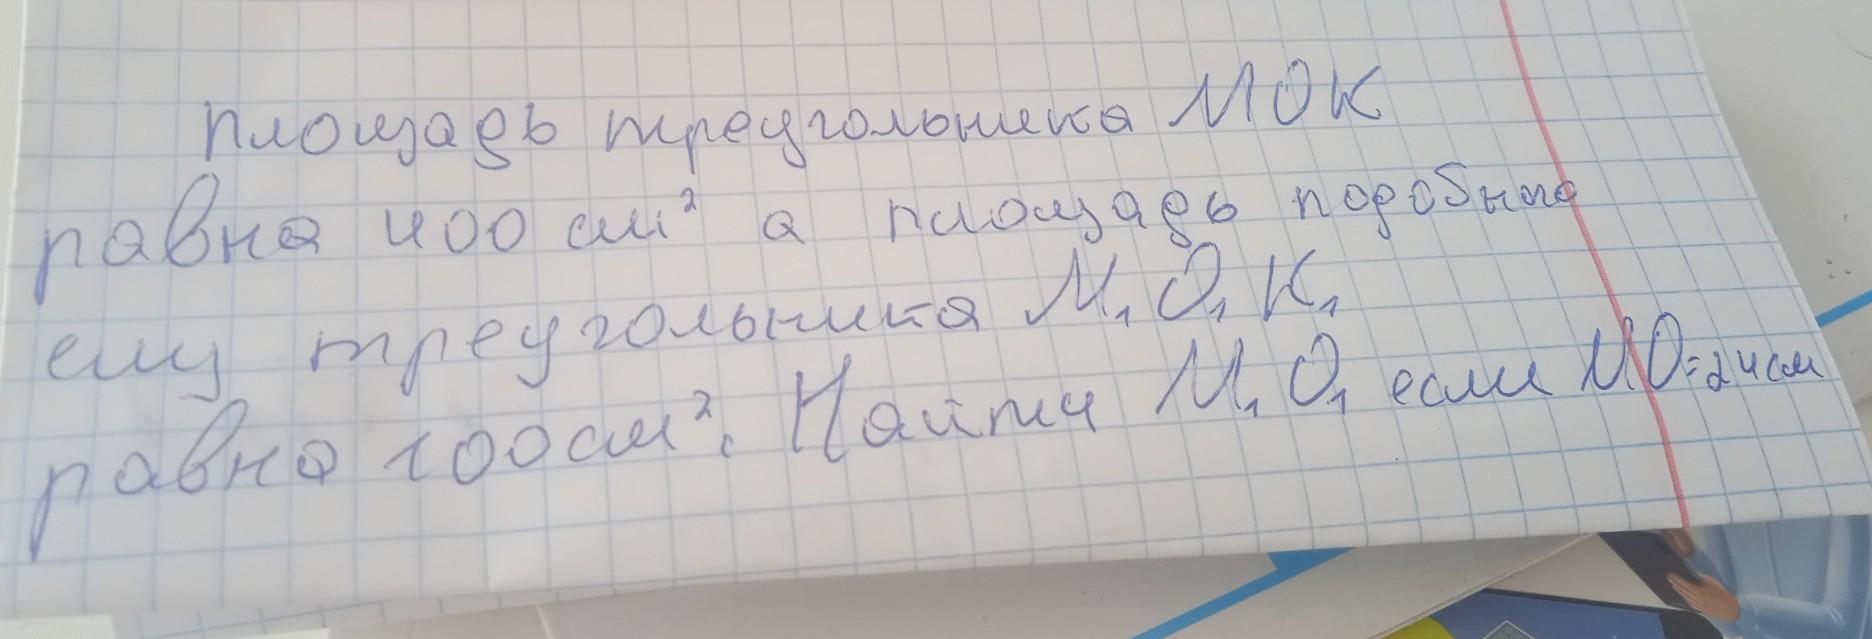 площадь треугольника МОК
равна 400 см² а площадь подобного
ему треугольника М₁О₁К₁
равна 100 см². Найти М₁О₁ если МО=24см